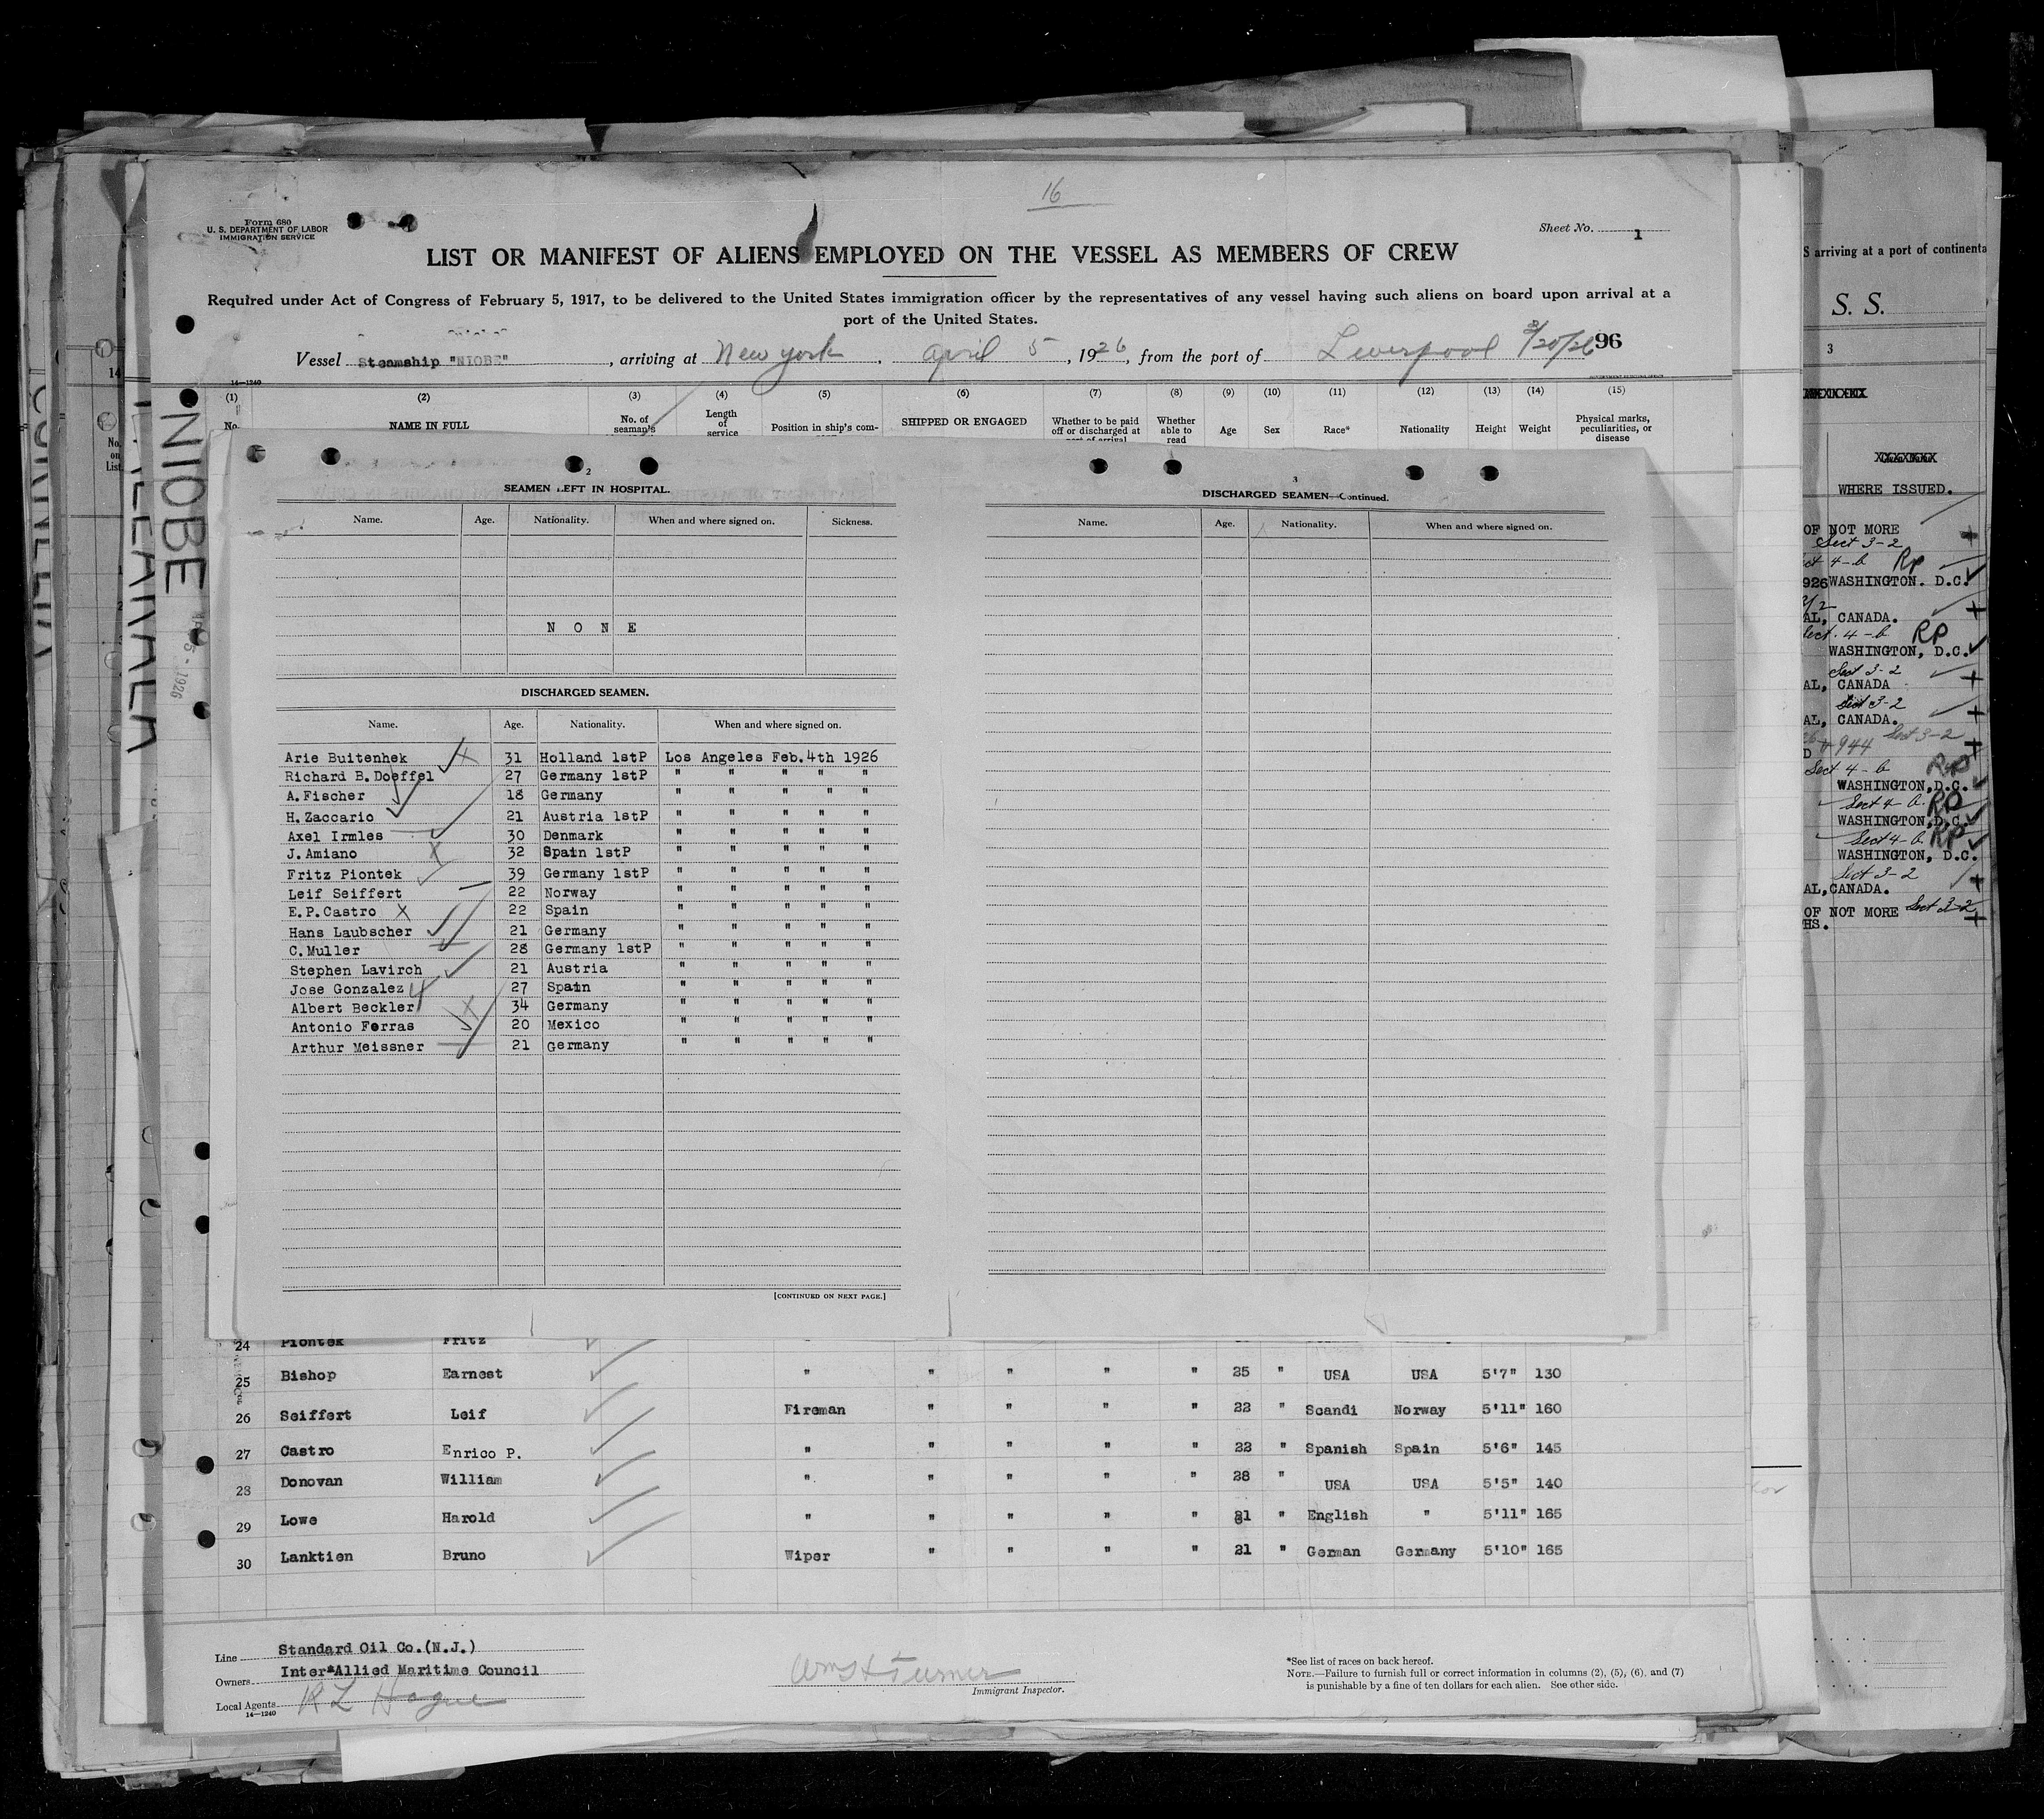 16
Form 680
U. S. DEPARTMENT OF LABOR
IMMIGRATION SERVICE
Sheet No. 1
LIST OR MANIFEST OF ALIENS EMPLOYED ON THE VESSEL AS MEMBERS OF CREW
Required under Act of Congress of February 5, 1917, to be delivered to the United States immigration officer by the representatives of any vessel having such aliens on board upon arrival at a
port of the United States.
Vessel Steamship "NIOBE", arriving at New York, April 5, 1926, from the port of Liverpool 3/20/26 96
14—1240
(1) (2) (3) (4) (5) (6) (7) (8) (9) (10) (11) (12) (13) (14) (15)
No. NAME IN FULL No. of seaman's Length of service Position in ship's com- SHIPPED OR ENGAGED Whether to be paid off or discharged at port of arrival Whether able to read Age Sex Race* Nationality Height Weight Physical marks, peculiarities, or disease
NIOBE
APR 5 - 1926
2
SEAMEN LEFT IN HOSPITAL.
Name. Age. Nationality. When and where signed on. Sickness.
N O N E
DISCHARGED SEAMEN.
Name. Age. Nationality. When and where signed on.
Arie Buitenhek 31 Holland 1stP Los Angeles Feb.4th 1926
Richard B.Doeffel 27 Germany 1stP " " " " "
A.Fischer 18 Germany " " " " "
H.Zaccario 21 Austria 1stP " " " " "
Axel Irmles 30 Denmark " " " " "
J.Amiano 32 Spain 1stP " " " " "
Fritz Piontek 39 Germany 1stP " " " " "
Leif Seiffert 22 Norway " " " " "
E.P.Castro 22 Spain " " " " "
Hans Laubscher 21 Germany " " " " "
C.Muller 28 Germany 1stP " " " " "
Stephen Lavirch 21 Austria " " " " "
Jose Gonzalez 27 Spain " " " " "
Albert Beckler 34 Germany " " " " "
Antonio Ferras 20 Mexico " " " " "
Arthur Meissner 21 Germany " " " " "
[CONTINUED ON NEXT PAGE.]
3
DISCHARGED SEAMEN—Continued.
Name. Age. Nationality. When and where signed on.
24 Piontek Fritz
25 Bishop Earnest " " " " " 25 " USA USA 5'7" 130
26 Seiffert Leif Fireman " " " " 22 " Scandi Norway 5'11" 160
27 Castro Enrico P. " " " " " 22 " Spanish Spain 5'6" 145
28 Donovan William " " " " " 28 " USA USA 5'5" 140
29 Lowe Harold " " " " " 21 " English " 5'11" 165
30 Lanktien Bruno Wiper " " " " 21 " German Germany 5'10" 165
Line Standard Oil Co.(N.J.)
Owners Inter*Allied Maritime Council
Local Agents R L Hague
14—1240
Wm H Turner
Immigrant Inspector.
*See list of races on back hereof.
NOTE.—Failure to furnish full or correct information in columns (2), (5), (6), and (7)
is punishable by a fine of ten dollars for each alien. See other side.
S arriving at a port of continenta
S. S.
3
WHERE ISSUED.
OF NOT MORE
Sect 3-2
ct 4-b RP
926 WASHINGTON. D.C.
AL, CANADA.
Sect. 4-b RP
WASHINGTON, D.C.
Sect 3-2
AL, CANADA
Sect 3-2
AL, CANADA.
944 Sect 3-2
D
Sect 4-b RP
WASHINGTON,D.C.
Sect 4-b. RP
WASHINGTON,D.C.
Sect 4-b RP
WASHINGTON, D.C.
Sect 3-2
AL,CANADA.
OF NOT MORE Sect 3-2
HS.
14
No. on List